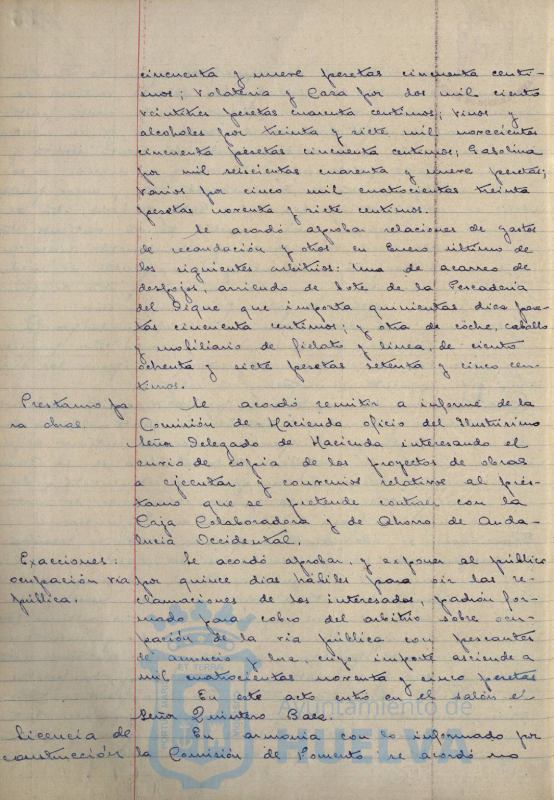 cincuenta y nueve pesetas cincuenta centi-
mos; Volateria y Caza por dos mil ciento
veintitres pesetas cuarenta centimos; vinos y
alcoholes por treinta y siete mil novecientas
cincuenta pesetas cincuenta centimos; Gasolina
por mil seiscientas cuarenta y nueve pesetas;
varios por cinco mil cuatrocientas treinta
pesetas noventa y siete centimos.
Se acordó aprobar relaciones de gastos
de recaudación y otros en Enero último de
los siguientes arbitrios: una de acarreo de
despojos, arriendo de bote de la Pescaderia
del Dique que importa quinientas diez pese-
tas cincuenta centimos; y otra de coche, caballo
y mobiliario de fielato y linea, de ciento
ochenta y siete pesetas setenta y cinco cen-
timos.
Prestamo pa
ra obras.
Se acordó remitir a informe de la
Comisión de Hacienda oficio del Ilustrisimo
Señor Delegado de Hacienda interesando el
envio de copia de los proyectos de obras
a ejecutar y convenios relativos al prés-
tamo que se pretende contraer con la
Caja Colaboradora y de Ahorro de Anda-
lucia Occidental.
Exacciones:
ocupación via
pública.
Se acordó aprobar, y exponer al público
por quince dias hábiles para oir las re-
clamaciones de los interesados, padrón for-
mado para cobro del arbitrio sobre ocu-
pación de la via pública con pescantes
de anuncio y luz, cuyo importe asciende a
mil cuatrocientas noventa y cinco pesetas
En este acto entró en el salón el
Señor Quintero Baez.
Licencia de
construcción
En armonia con lo informado por
la Comisión de Fomento se acordó no
Ayuntamiento de
HUELVA